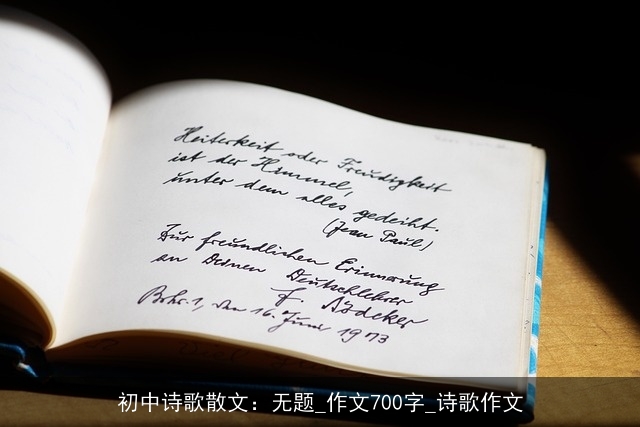 Heiterkeit oder Freudigkeit
ist der Himmel,
unter dem alles gedeiht.
(Jean Paul)
Zur freundlichen Erinnerung
an Deinen Deutschlehrer
den 16. Juni 1973
初中诗歌散文：无题_作文700字_诗歌作文